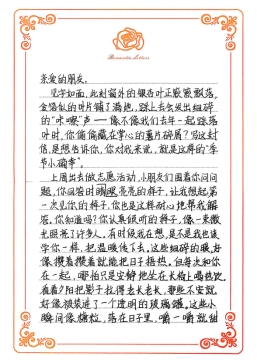 Romantic Letters
亲爱的朋友:
见字如面,此刻窗外的银杏叶正簌簌飘落,
金箔似的叶片铺了满地,踩上去会发出细碎
的“咔嚓”声——像不像我们去年一起踩落
叶时,你偷偷藏在掌心的薯片碎屑?写这封
信,是想告诉你,你对我来说,就是这样的“季
节小确幸”。
上周出去做志愿活动,小朋友们围着你问问
题,你回答时眼睛亮亮的样子,让我想起第
一次见你的样子,你也是这样耐心地帮我解
答。你知道吗?你认真倾听的样子,像一束微
光照亮了许多人,有时候我在想,是不是我也该
学你一样,把温暖传下去。这些细碎的暖,好
像攒着攒着就能把日子捂热。但每次和你
在一起,哪怕只是安静地坐在长椅上喝热饮,
看着夕阳把影子拉得老长老长,那些不安就
好像被装进了一个透明的玻璃罐。这些小
瞬间像糖粒,落在日子里,嚼一嚼就甜